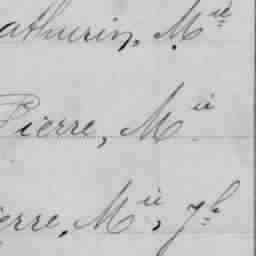 athurin, Mie
Pierre, Mie
erre, Mie, Jh